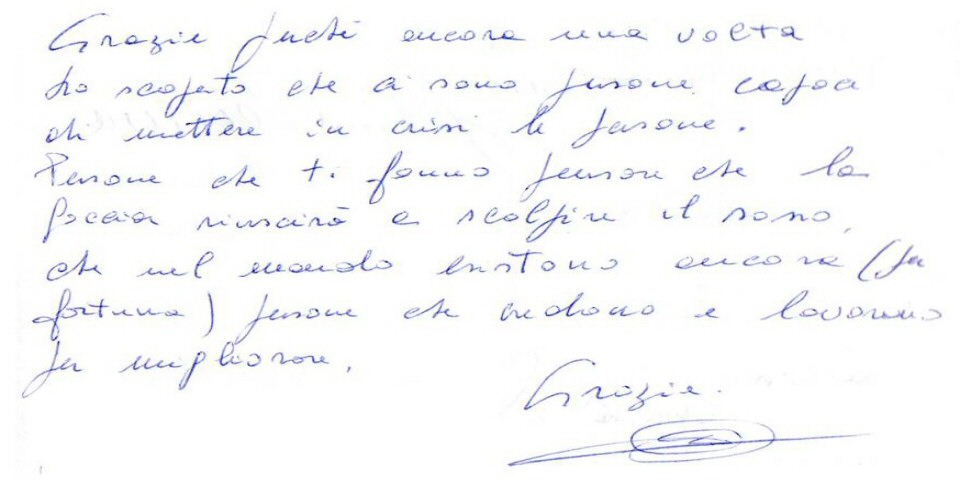 Grazie perché ancora una volta
ho scoperto che ci sono persone capaci
di mettere in crisi le persone.
Persone che ti fanno pensare che la
goccia riuscirà a scolfire il sasso,
che nel mondo esistono ancora (per
fortuna) persone che credono e lavorano
per migliorare.
Grazie.